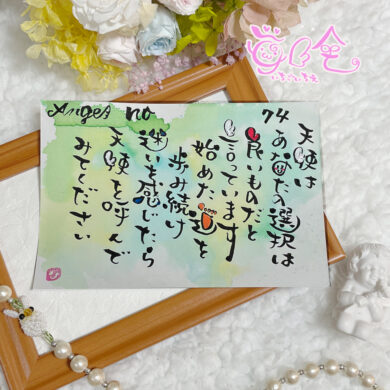 Angel no
74
天使は
あなたの選択は
良いものだと
言っています
始めた道を
歩み続け
迷いを感じたら
天使を呼んで
みてください